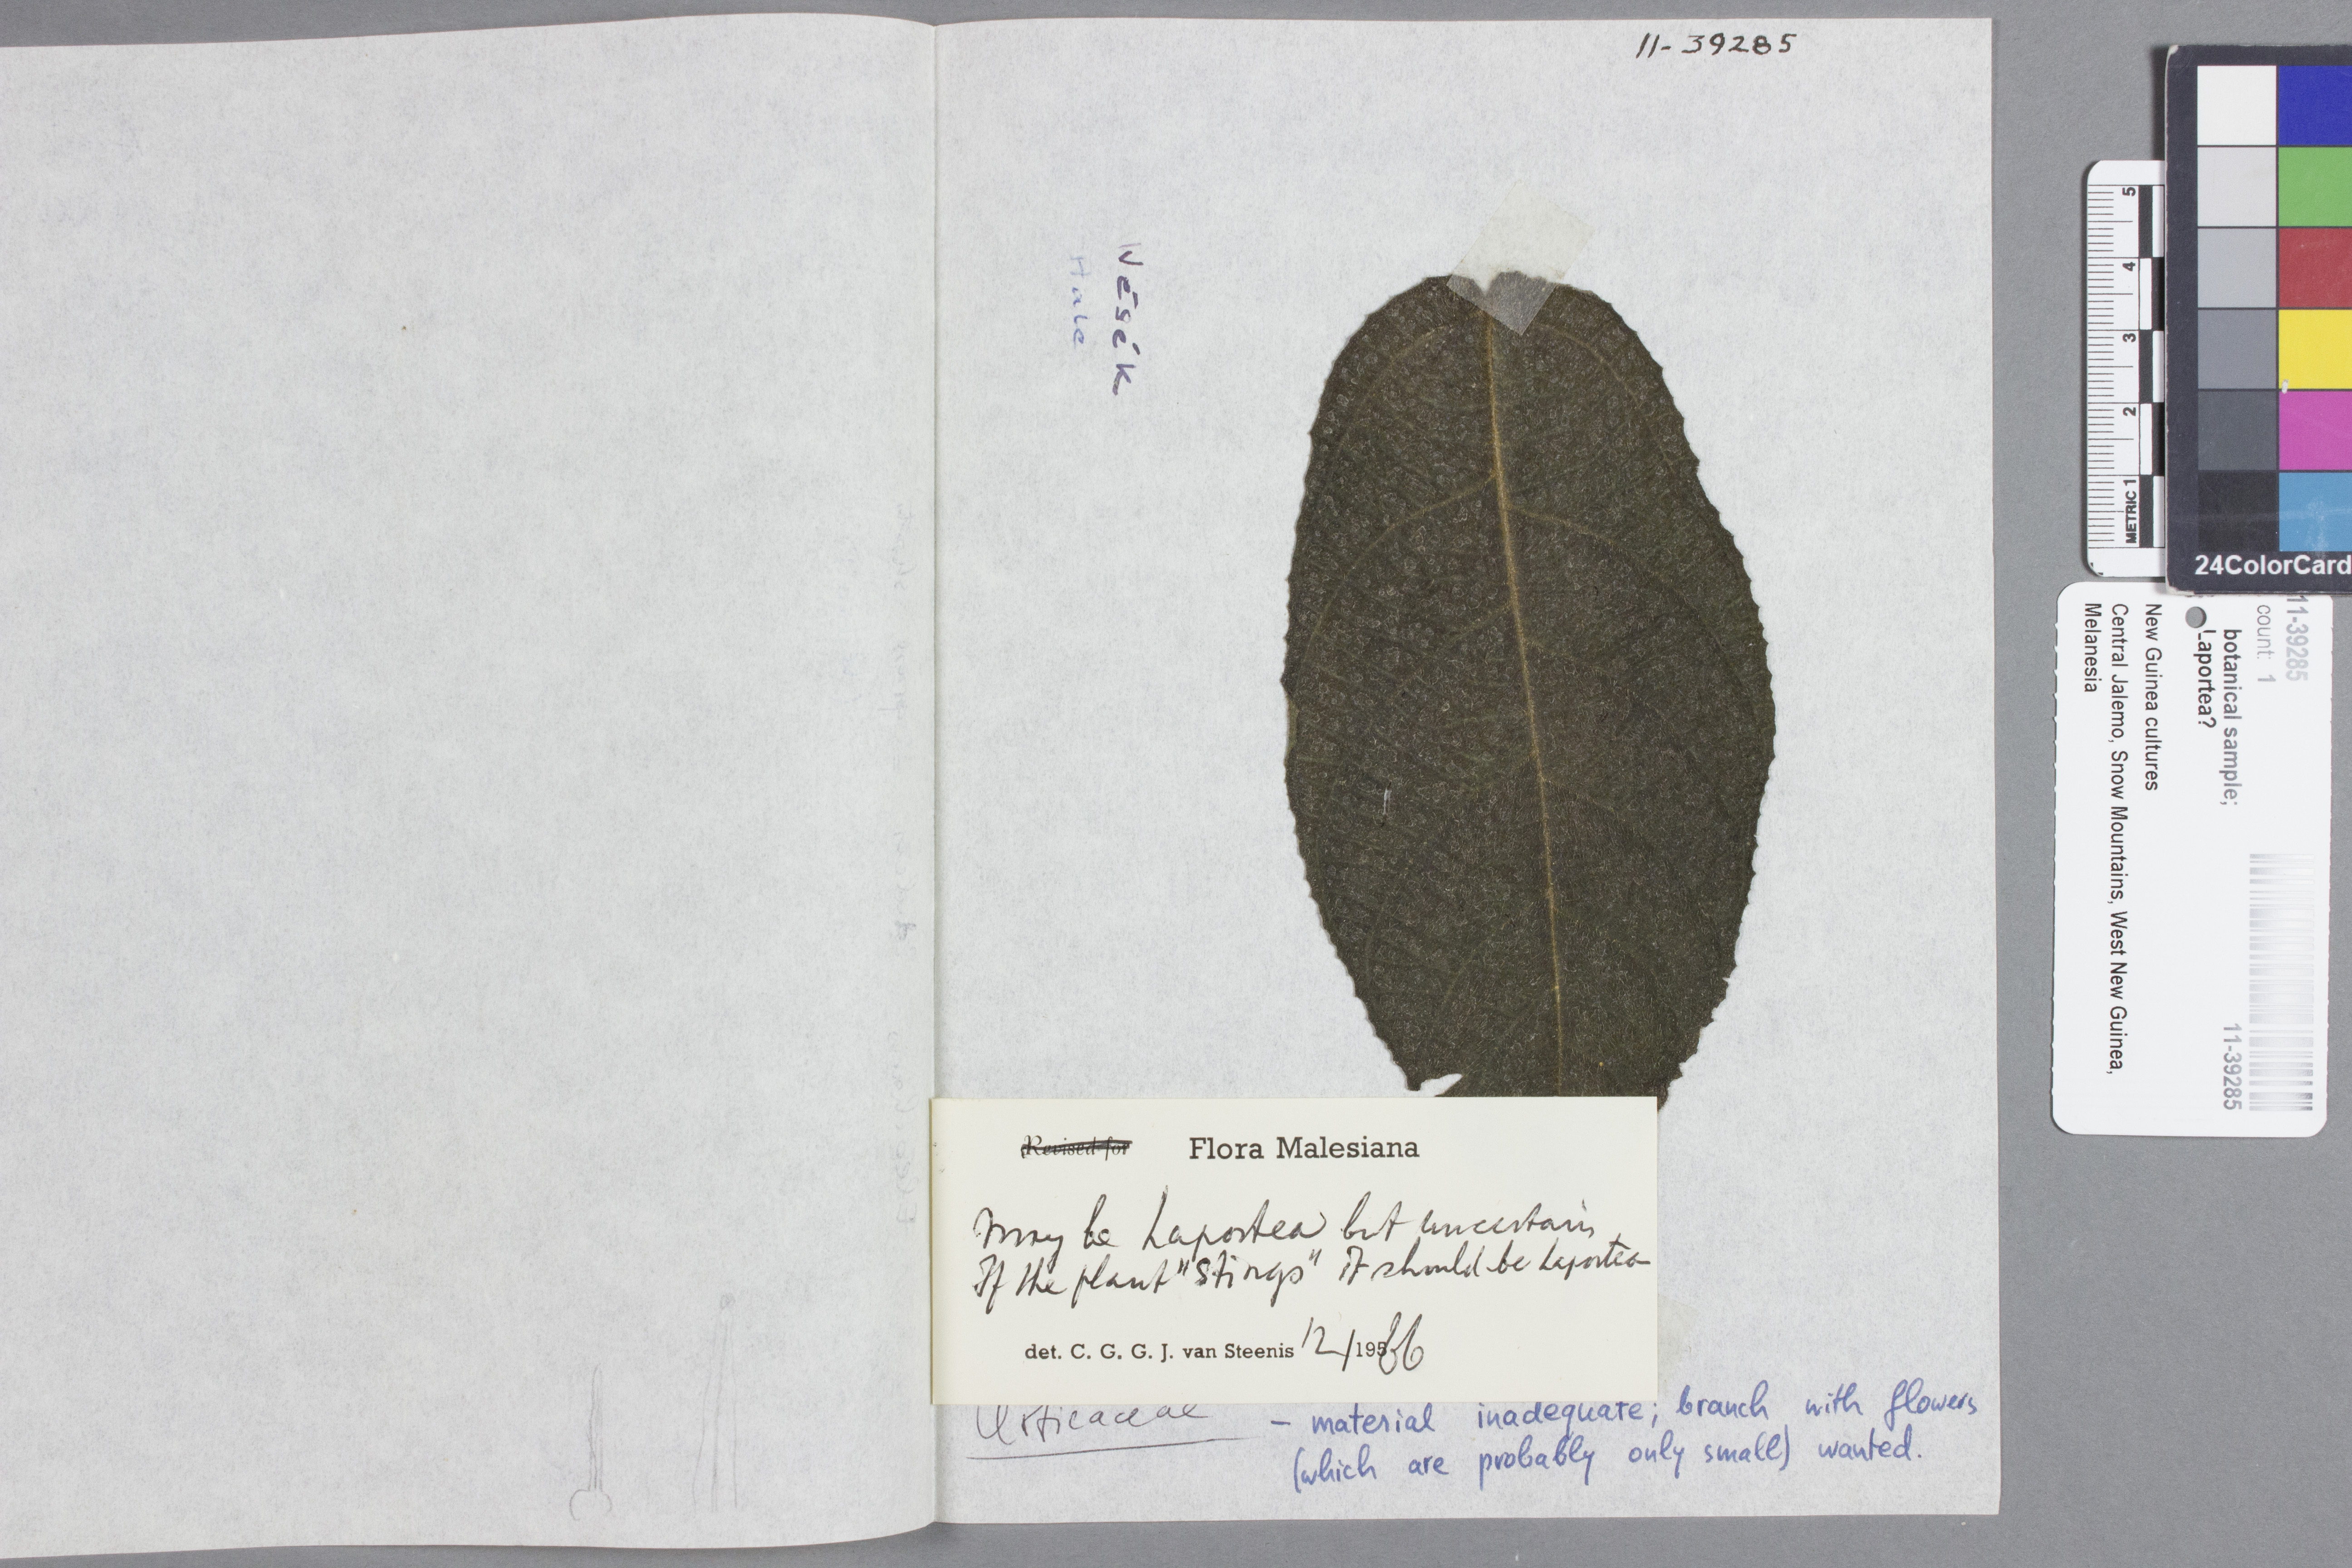 11-39285
Wésék
Hale
Revised for Flora Malesiana
may be Laportea but uncertain
If the plant "stings" it should be Laportea
det. C. G. G. J. van Steenis 12/1966
Urticaceae
- material inadequate; branch with flowers
(which are probably only small) wanted.
5
4
3
2
METRIC 1
24ColorCard
11-39285
count: 1
botanical sample;
Laportea?
New Guinea cultures
Central Jalemo, Snow Mountains, West New Guinea,
Melanesia
11-39285